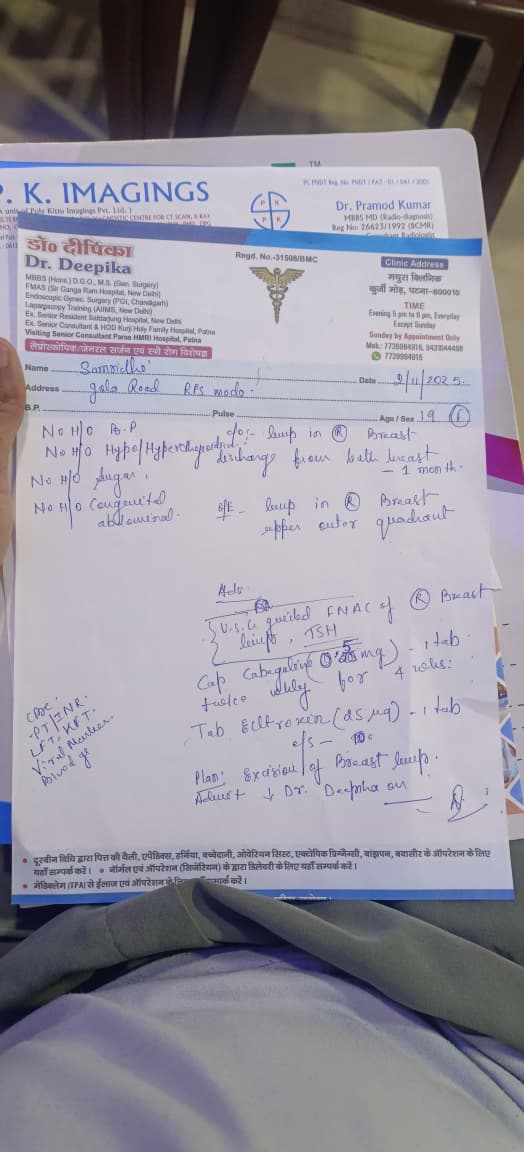 TM
P. K. IMAGINGS
PC PNDT Reg. No. PNDT / PAT - 01 / 041 / 2001
Dr. Pramod Kumar
MBBS MD (Radio-diagnosis)
Reg No: 26623/1992 (BCMR)
P K
P K
डॉ० दीपिका
Dr. Deepika
MBBS (Hons.) D.G.O., M.S. (Gen. Surgery)
FMAS (Sir Ganga Ram Hospital, New Delhi)
Endoscopic Gynec. Surgery (PGI, Chandigarh)
Laparoscopy Training (AIIMS, New Delhi)
Ex. Senior Resident Safdarjung Hospital, New Delhi
Ex. Senior Consultant & HOD Kurji Holy Family Hospital, Patna
Visiting Senior Consultant Paras HMRI Hospital, Patna
लेप्रोस्कोपिक/जेनरल सर्जन एवं स्त्री रोग विशेषज्ञ
Regd. No.-31508/BMC
Clinic Address
मथुरा क्लिनिक
कुर्जी मोड़, पटना-800010
TIME
Evening 5 pm to 8 pm, Everyday
Except Sunday
Sunday by Appointment Only
Mob.: 7739984916, 9431044498
7739984916
Name Date 9/11/2025.
Address gola Road RPS mode.
B.P. Pulse Age / Sex 19 F
No H/O B.P c/o:- lump in R Breast
No H/O Hypo/Hyperthyroidism discharge from both breast
- 1 month.
No H/O Sugar,
No H/O Congenital
abdominal.
O/E - lump in R Breast
upper outer quadrant
Adv.
U.S.G guided FNAC of R Breast
lump, TSH
Cap mg) - 1 tab
twice weekly for 4 wks.
Tab Eltroxin (25 µg) - 1 tab
e/s -
Plan: Excision of Breast lump.
Admit ↓ Dr. Deepika on
CBC.
PT/INR.
LFT, KFT.
Viral Marker
Blood gr
• दूरबीन विधि द्वारा पित्त की थैली, एपेंडिक्स, हर्निया, बच्चेदानी, ओवेरियन सिस्ट, एक्टोपिक प्रिग्नेन्सी, बांझपन, बवासीर के ऑपरेशन के लिए
यहाँ सम्पर्क करें। • नॉर्मल एवं ऑपरेशन (सिजेरियन) के द्वारा डिलेवरी के लिए यहाँ सम्पर्क करें।
• मेडिक्लेम (TPA) से ईलाज एवं ऑपरेशन के सम्पर्क करें।